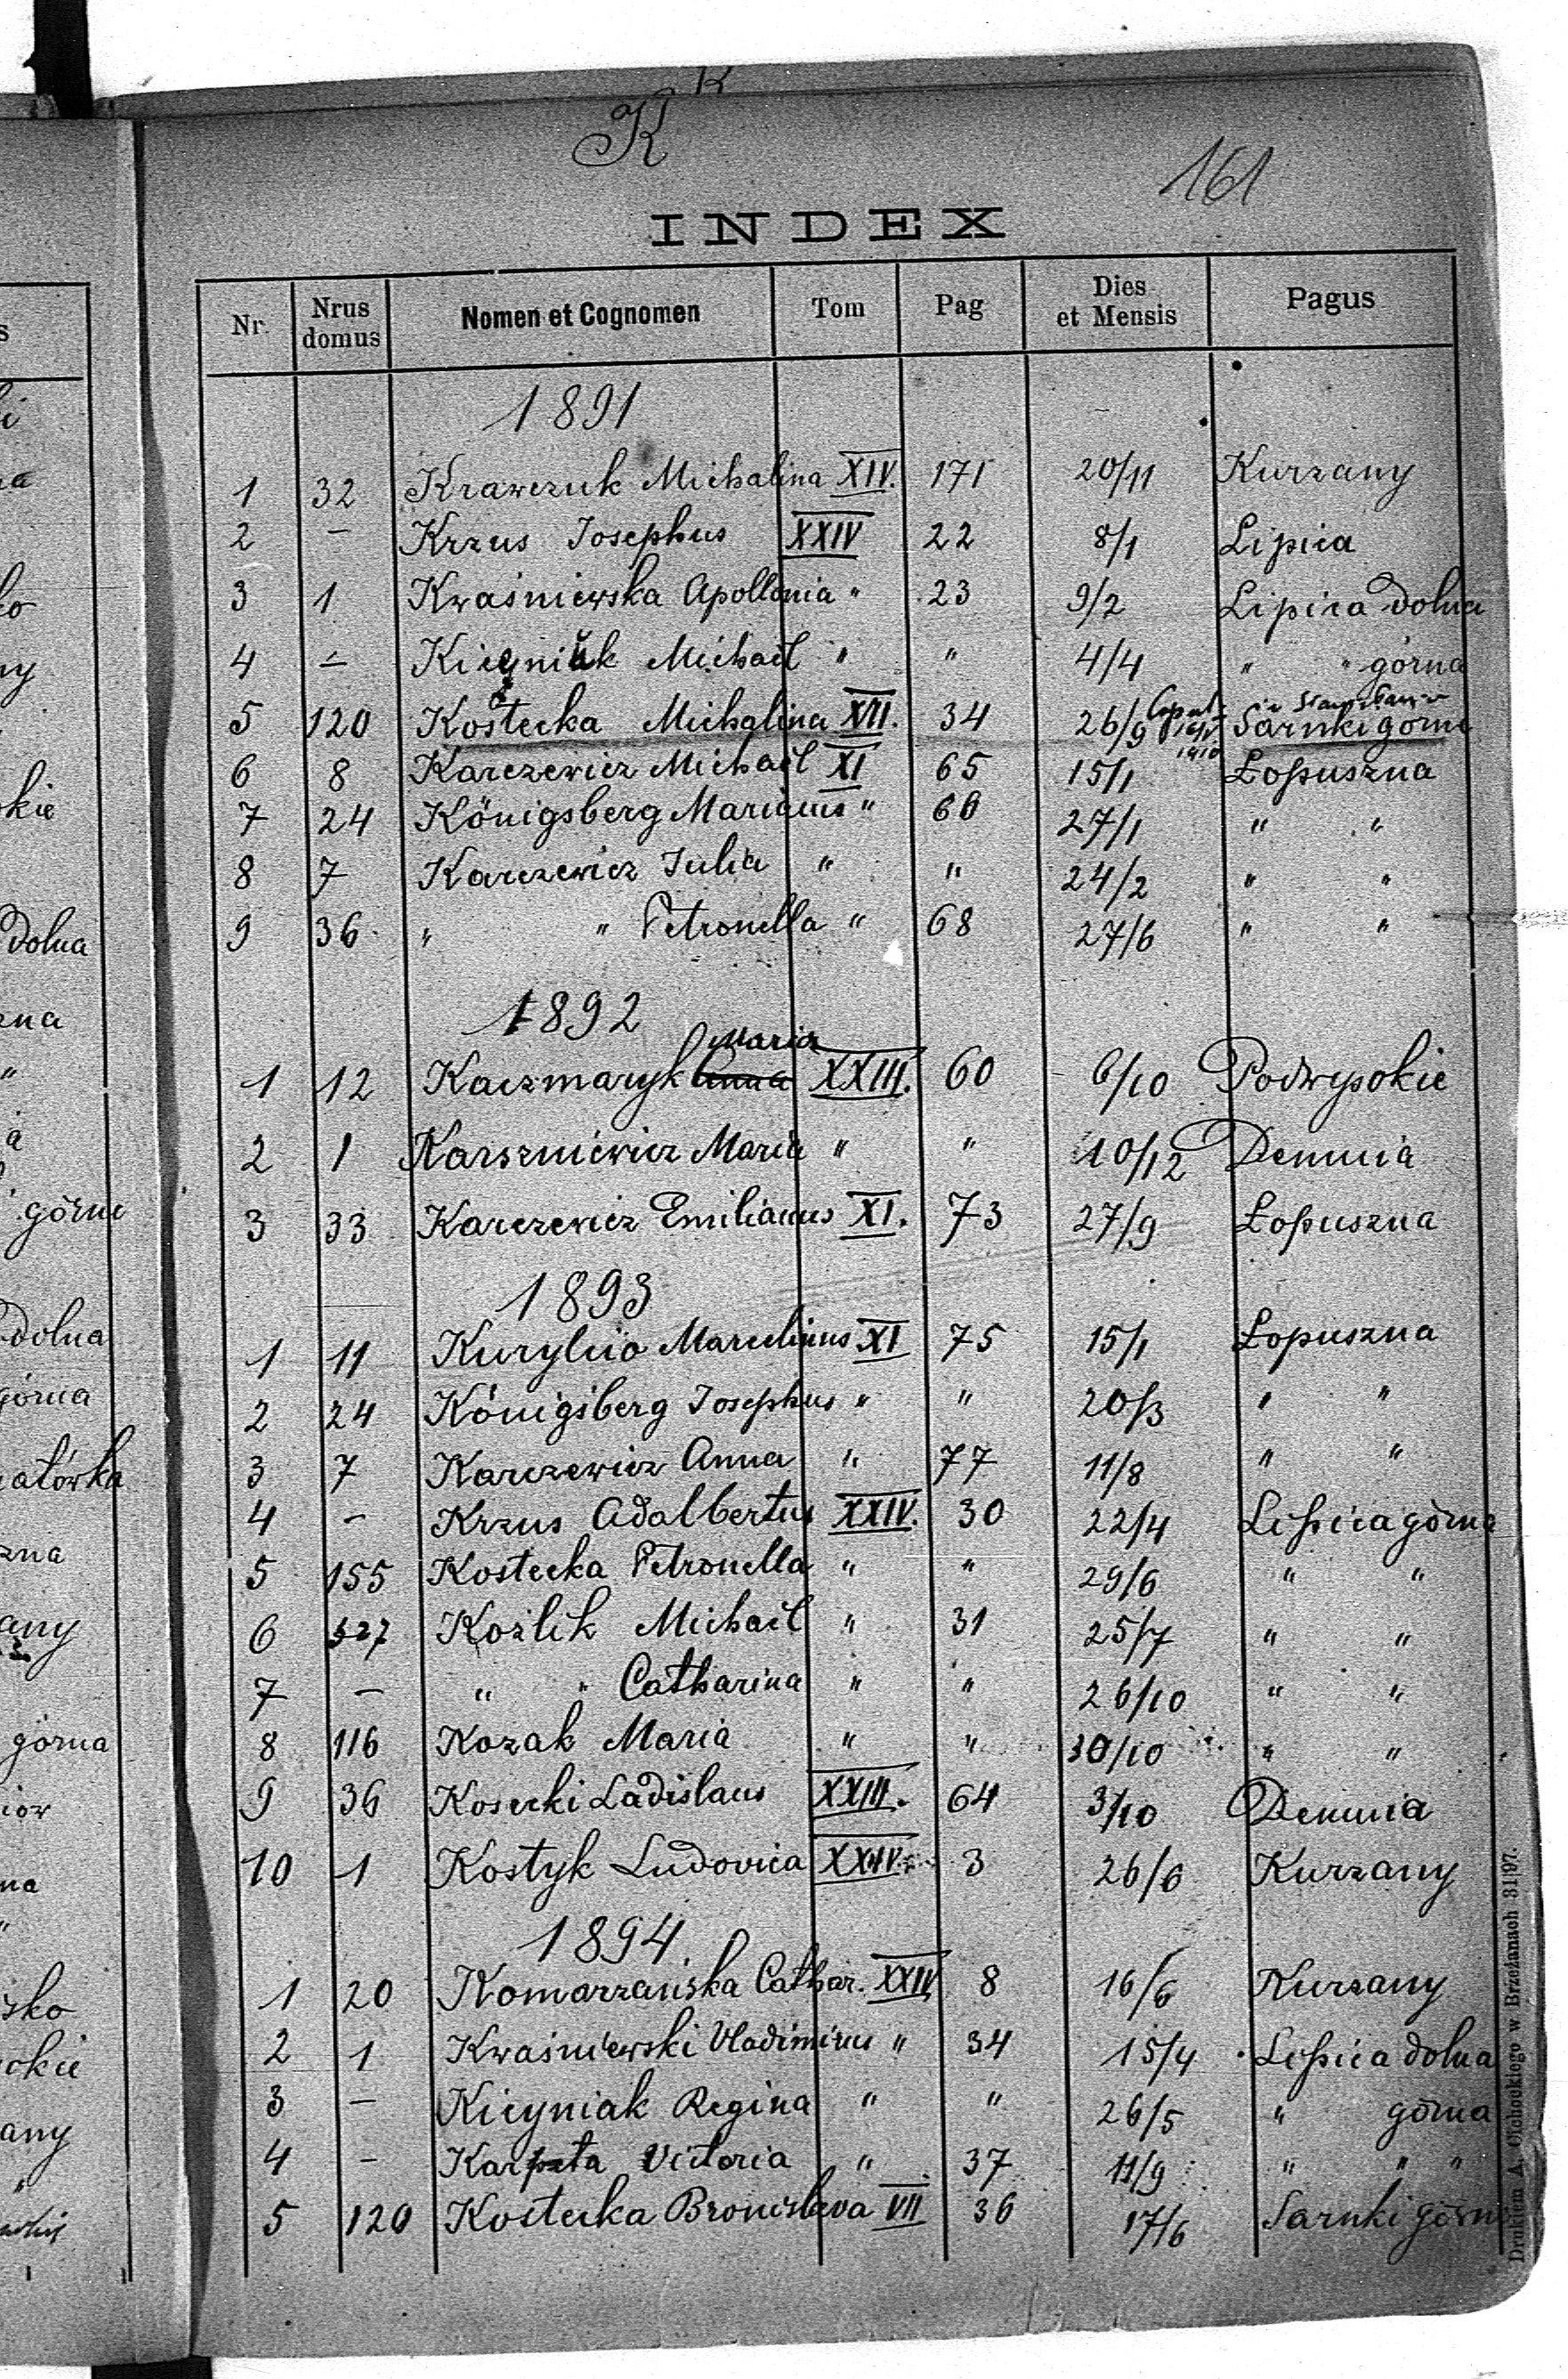 K
K
161
INDEX
Nr. Nrus domus Nomen et Cognomen Tom Pag Dies et Mensis Pagus
1891
1 32 Krawczuk Michalina XIV. 171 20/11 Kurzany
2 — Krzus Josephus XXIV 22 8/1 Lipica
3 1 Kwaśniewska Apollonia " 23 9/2 Lipica dolna
4 — Kicyniak Michael " " 4/4 " " górna
5 120 Kostecka Michalina XVII. 34 26/9 Sarnki górne
6 8 Karczewicz Michael XI 65 15/1 Łopuszna
7 24 Königsberg Marianus " 66 27/1 " "
8 7 Karczewicz Julia " " 24/2 " "
9 36 " " Petronella " 68 27/6 " "
1892
Maria
1 12 Kaczmaryk Anna XXIII. 60 6/10 Podwysokie
2 1 Karszniewicz Maria " " 10/12 Demnia
3 33 Karczewicz Emilianus XI. 73 27/9 Łopuszna
1893
1 11 Kuryło Marcelinus XI 75 15/1 Łopuszna
2 24 Königsberg Josephus " " 20/3 " "
3 7 Karczewicz Anna " 77 11/8 " "
4 — Krzus Adalbertus XXIV. 30 22/4 Lipica górna
5 155 Kostecka Petronella " " 29/6 " "
6 327 Koźlik Michael " 31 25/7 " "
7 — " " Catharina " " 26/10 " "
8 116 Kozak Maria " " 30/10 " "
9 36 Kosecki Ladislaus XXIII. 64 3/10 Demnia
10 1 Kostyk Ludovica XXIV. 3 26/6 Kurzany
1894.
1 20 Komarzańska Cathar. XXIV 8 16/6 Kurzany
2 1 Kwaśniewski Vladimirus " 34 15/4 Lipica dolna
3 — Kicyniak Regina " " 26/5 " górna
4 — Karpata Victoria " 37 11/9 " " "
5 120 Kostecka Bronislava VII 36 17/6 Sarnki górne
Drukiem A. Olchockiego w Brzeżanach 31|97.